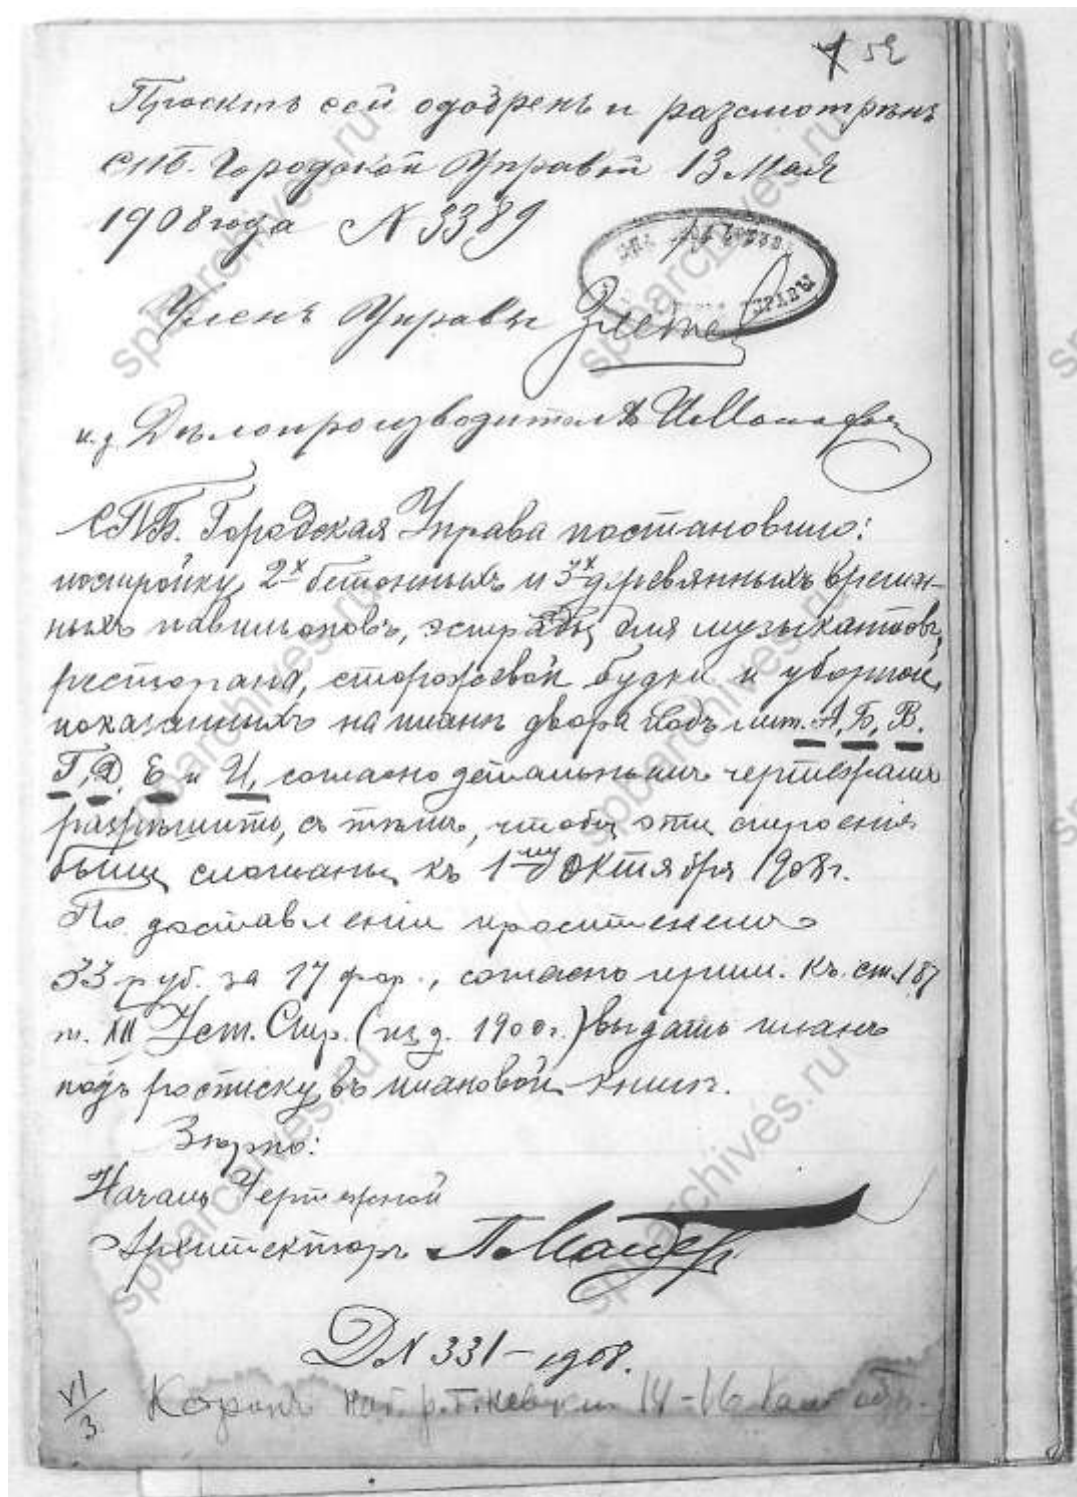 52
Проектъ сей одобренъ и разсмотрѣнъ
СПб. Городской Управой 13 Мая
1908 года N 3389
УПРАВЫ
Членъ Управы
и. д. Дѣлопроизводителя
СПБ. Городская Управа постановила:
постройку 2х бетонныхъ и 3х деревянныхъ времен-
ныхъ павильоновъ, эстрады для музыкантовъ,
ресторана, сторожевой будки и уборной,
показанныхъ на планѣ двора подъ лит. А, Б, В.
Г, Д, Е и И, согласно детальнымъ чертежамъ
разрѣшить, съ тѣмъ, чтобы эти строенія
были сломаны къ 1му Октября 1908 г.
По доставленіи просителемъ
33 руб. за 17 фор., согласно прим. къ ст. 187
т. XII Уст. Стр. (изд. 1900 г.) выдать планъ
подъ росписку въ плановой книгѣ.
Вѣрно:
Началь. Чертежной
Архитекторъ
Д N 331 – 1908.
VI/3 наб. р. Б. Невки 14-16
spbarchives.ru
spbarchives.ru
spbarchives.ru
spbarchives.ru
spbarchives.ru
spbarchives.ru